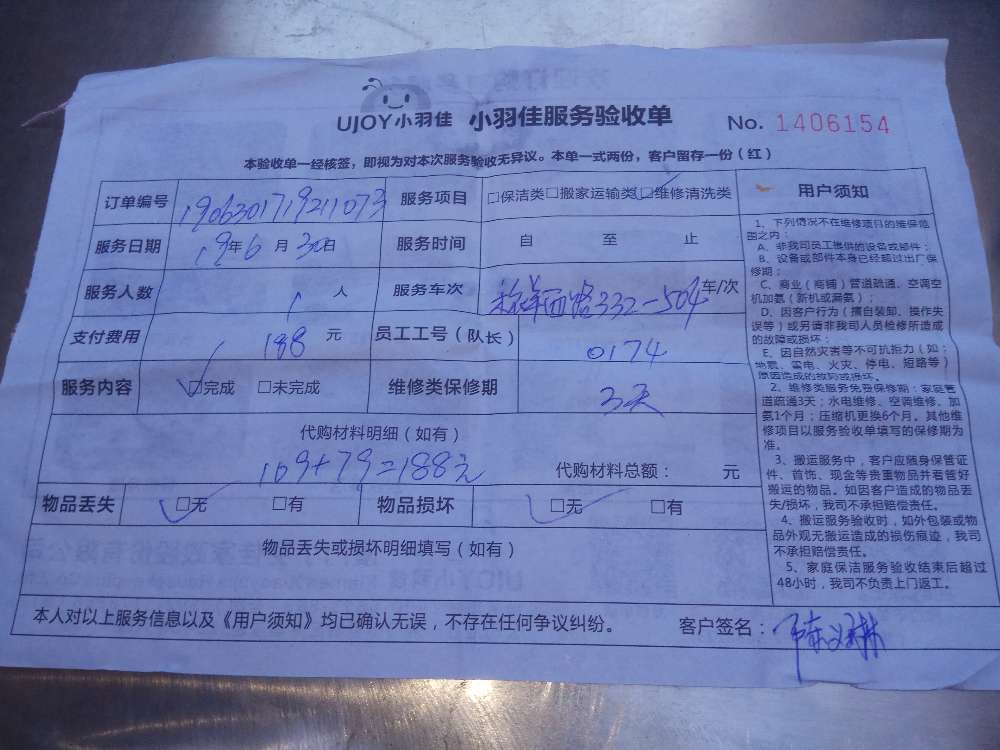 UJOY小羽佳 小羽佳服务验收单 No. 1406154
本验收单一经核签，即视为对本次服务验收无异议。本单一式两份，客户留存一份（红）
订单编号 190630171921073 服务项目 □保洁类□搬家运输类□维修清洗类
服务日期 19年6月30日 服务时间 自 至 止
服务人数 1 人 服务车次 西路332-504 车/次
支付费用 188 元 员工工号（队长） 0174
服务内容 □完成 □未完成 维修类保修期 3天
代购材料明细（如有）
109+79=188元 代购材料总额： 元
物品丢失 □无 □有 物品损坏 □无 □有
物品丢失或损坏明细填写（如有）
本人对以上服务信息以及《用户须知》均已确认无误，不存在任何争议纠纷。 客户签名：
用户须知
1、下列情况不在维修项目的维保范
围之内：
A、非我司员工提供的设备或部件；
B、设备或部件本身已经超过出厂保
修期；
C、商业（商铺）管道疏通、空调空
机加氨（新机或漏氨）；
D、因客户行为（擅自装卸、操作失
误等）或另请非我司人员检修所造成
的故障或损坏；
E、因自然灾害等不可抗拒力（如：
地震、雷电、火灾、停电、短路等）
原因造成的故障或损坏。
2、维修类服务免费保修期：家庭管
道疏通3天；水电维修、空调维修、加
氨1个月；压缩机更换6个月。其他维
修项目以服务验收单填写的保修期为
准。
3、搬运服务中，客户应随身保管证
件、首饰、现金等贵重物品并看管好
搬运的物品。如因客户造成的物品丢
失/损坏，我司不承担赔偿责任。
4、搬运服务验收时，如外包装或物
品外观无搬运造成的损伤痕迹，我司
不承担赔偿责任。
5、家庭保洁服务验收结束后超过
48小时，我司不负责上门返工。